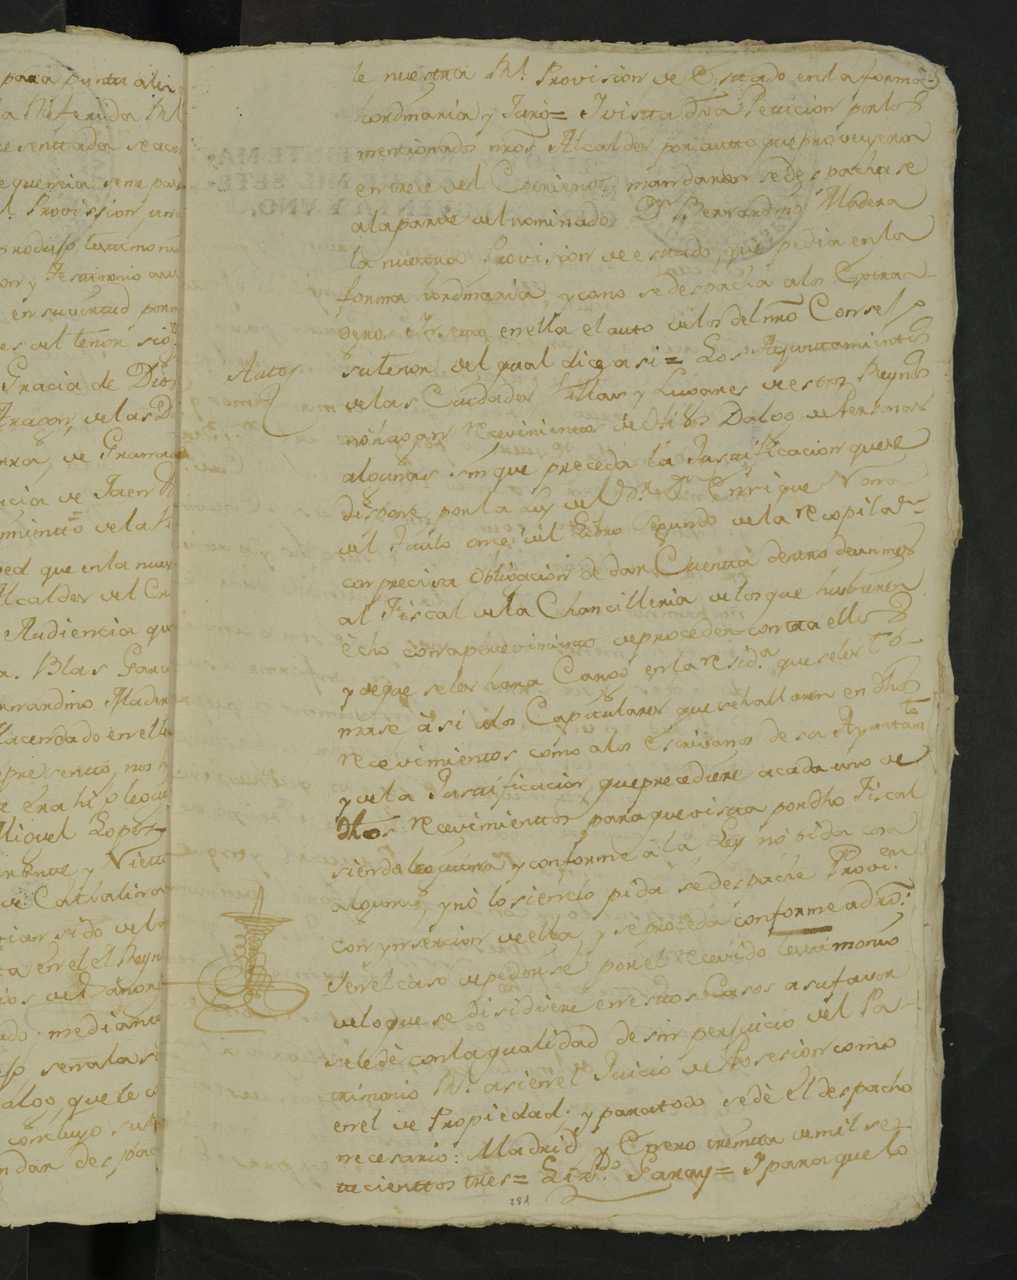 para punta a la
a Referida Rl
esenttada se aco
equencia, sene pa
l. Provission, una
produjo testimoni
on y Testimonio
en su virtud por
es del tenor sig.
Gracia de Dios
Aragon, de las D
rra, de Granad
cia de Jaen
mientto de la
ed que en la nue
Alcaldes del Cri
Audiencia que
a. Blas Garci
ernardino Mader
Hacendado en ella
presentto, nos
e Era hijo legit
Miguel Lopez
y Viett
de Cathalina
cian sido vel
ta en el el Reyn
ios del
ado mediante
so señalasi
algo, que le
concluyo su
ndar despac
le nuestra Rl. Provision de Estado en la forma
hordinaria y Juró= Y vista dha Peticion por los
mencionados nros Alcaldes por autto que proveyeron
en trece del Corriente, mandaron se despachase
a la parte del nominado Dn. Bernardino Madera
la nuestra Provision de estado, que pedia en la
forma hordinaria, y como se despacha a los
en ella el auto de los del nro Consejo
su tenor del qual dice asi = Los Ayuntamientos
Autos
de las Ciudades Villas y Lugares de estos Reynos
no hagan recevimiento de Hijos Dalgo de Personas
algunas sin que preceda la Justificacion que se
dispone por la Ley del Sr. Dn. Enrique
del Titulo once del Libro Segundo de la recopilasn
con precissa obligacion de dar Cuenta dentro de un mes
al Fiscal de la Chancilleria de los que hubieren
echo con apercevimiento de proceder contra ellos
y de que se les hara Cargo en la resida. que se les to-
mase â si a los Capitulares que se hallaren en dhos
recevimientos como a los Escrivanos de sa Ayuntamto
y de la Justificacion que precediere a cada uno de
dhos recevimientos para que vista por dho Fiscal
siendo legitima y conforme â la Ley no pida cosa
alguna, y nó lo siendo pida se despache Provion
con ynsercion de ella, y se proceda conforme a dro:
Y en el caso de pedirse por el recevido testimonio
de lo que se disidiere en estos Casos a su favor
se le dé con la qualidad de sin perjuicio del Pa-
trimonio Rl. asi en el Juicio de Posesion como
en el de Propiedad. y para todo se dé el despacho
necesario: Madrid y Enero treinta de mil se-
tecienttos tres= Lizdo. Garay= Y para que lo
281